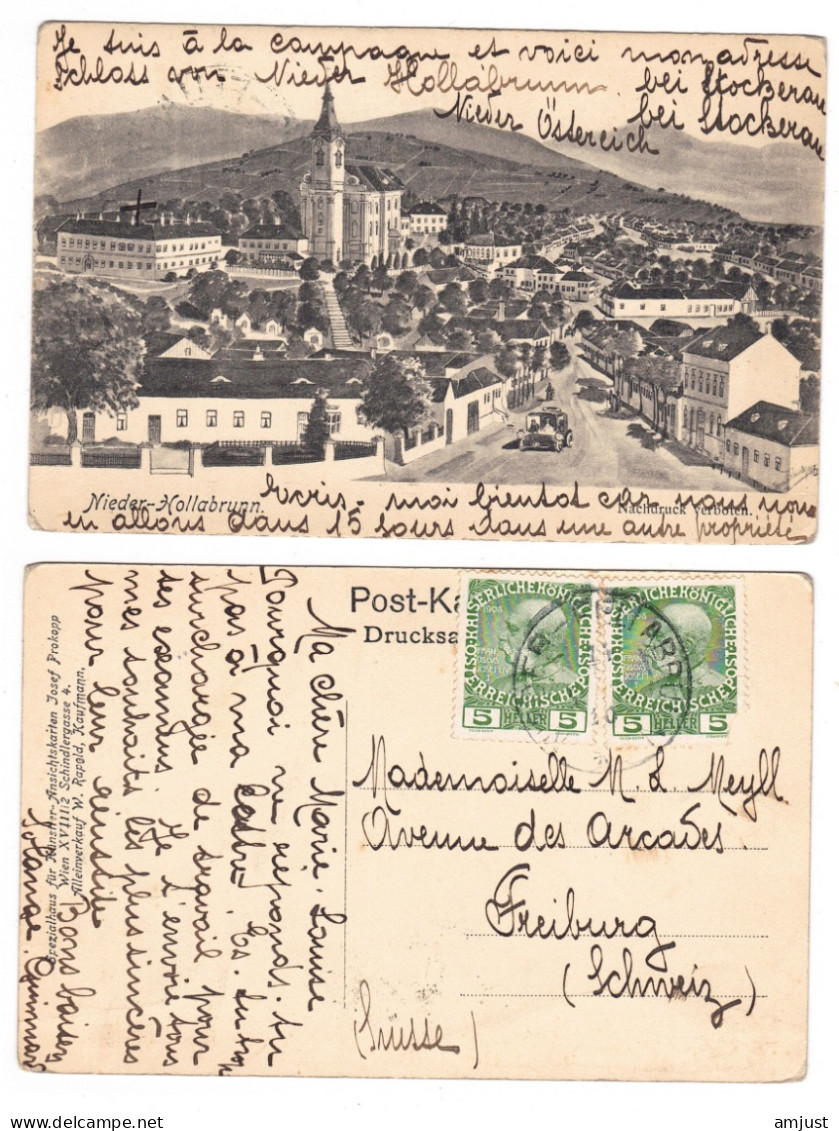 Je suis à la campagne et voici mon adresse
Schloss von Nieder Hollabrunn. bei Stockerau
Nieder Östereich bei Stockerau
Nieder-Hollabrunn.
Nachdruck verboten.
Ecris-moi bientot car nous nous
en allons dans 15 jours dans une autre propriété
Post-Ka
Drucksa
KAISERLICHE KÖNIGLICHE
ÖSTERREICHISCHE POST
1908
5 HELLER 5
KAISERLICHE KÖNIGLICHE
ÖSTERREICHISCHE POST
5 HELLER 5
Mademoiselle M. L. Meyll
Avenue des Arcades.
Freiburg
(Schweiz)
(Suisse)
Ma chère Marie-Louise
Pourquoi ne reponds-tu
pas à ma lettre. Es-tu trop
surchargée de travail pour
tes examens. Je t'envoie tous
mes souhaits les plus sincères
pour leur réussite
Bons baisers
Spezialhaus für Künstler-Ansichtskarten Josef Prokopp
Wien XVIII/2 Schindlergasse 4.
Alleinverkauf W. Rapold, Kaufmann.
amjust